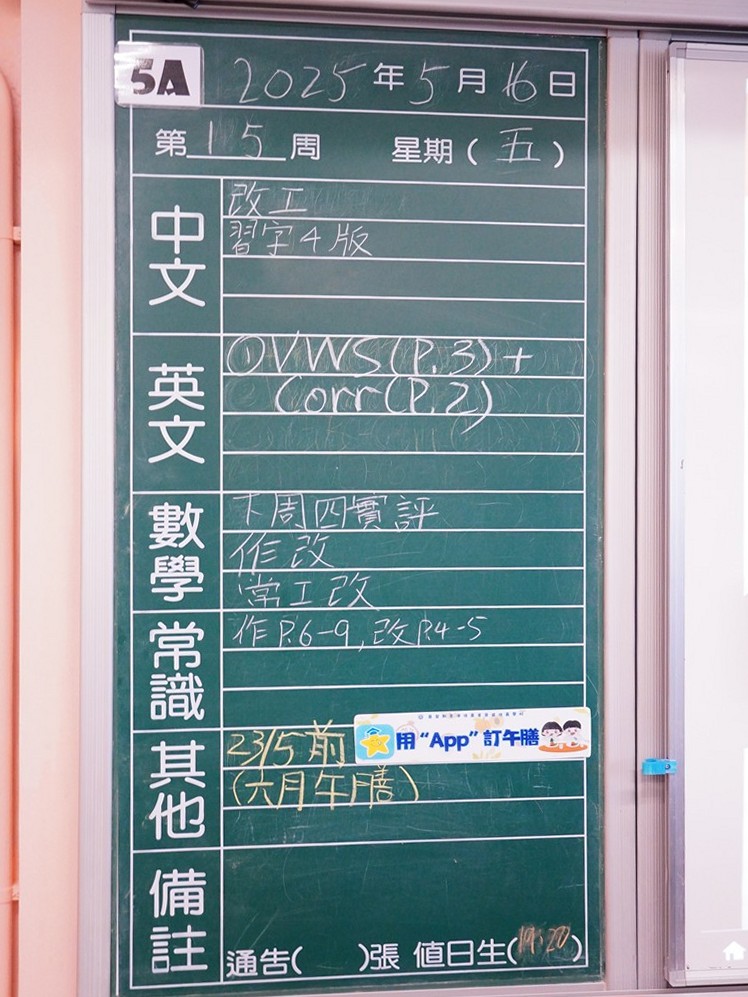 5A
2025年5月16日
第15周 星期(五)
中文
改工
習字4版
英文
①VWS(P.3)+
Corr(P.2)
數學
下周四實評
作改
常工改
常識
作P.6-9,改P.4-5
其他
23/5前 用“App”訂午膳
(六月午膳)
備註
通告( )張 值日生(19,20)